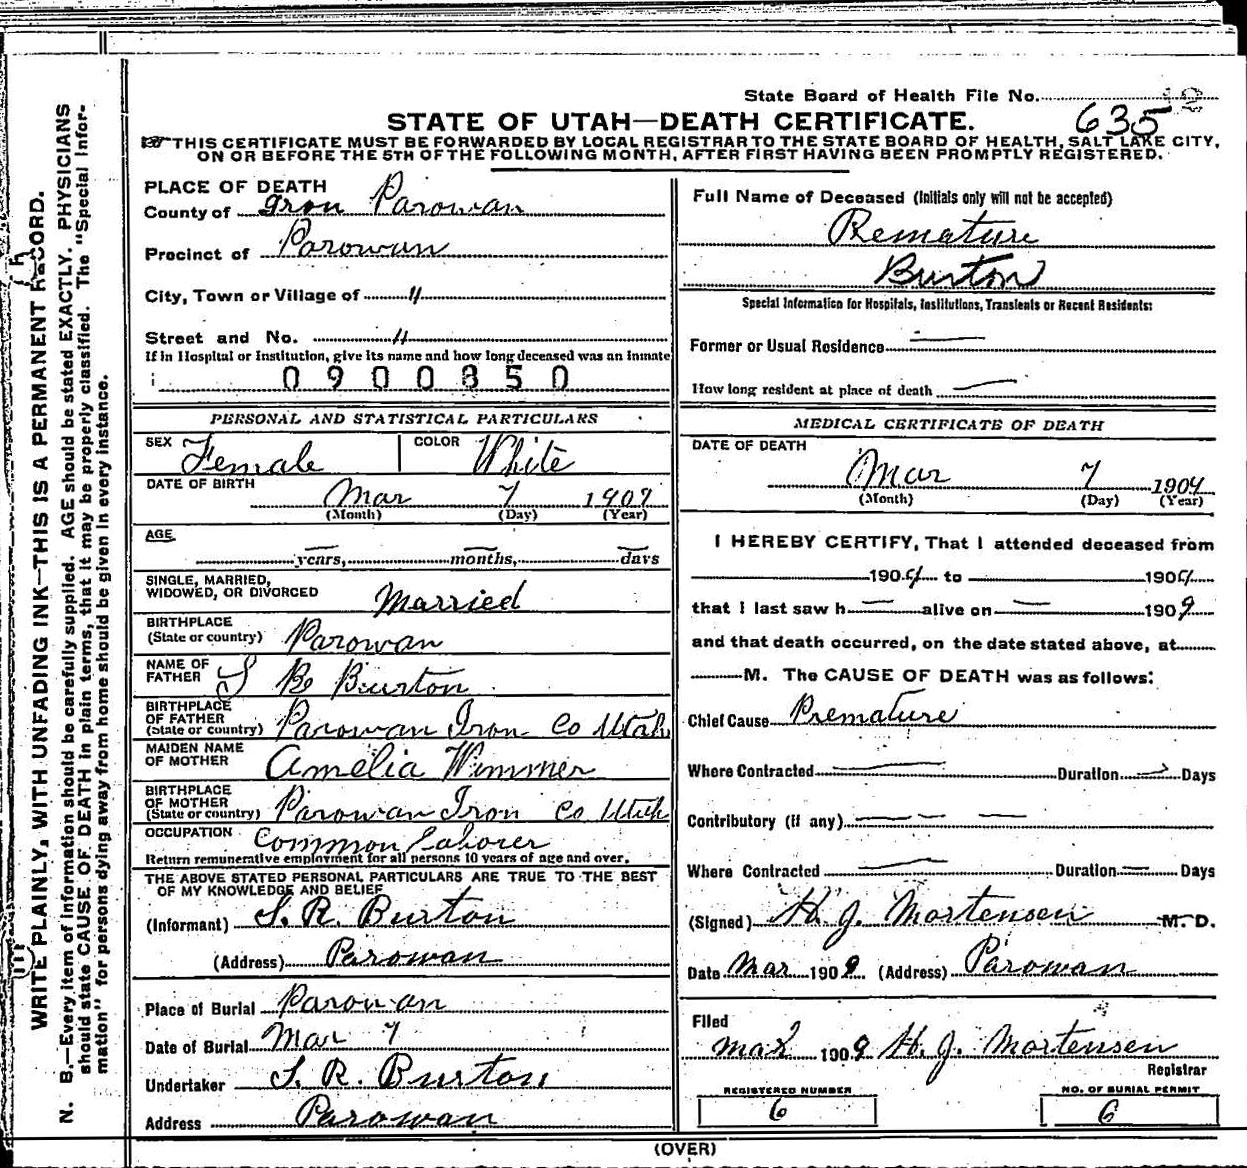 State Board of Health File No. 12
635
STATE OF UTAH—DEATH CERTIFICATE.
THIS CERTIFICATE MUST BE FORWARDED BY LOCAL REGISTRAR TO THE STATE BOARD OF HEALTH, SALT LAKE CITY,
ON OR BEFORE THE 5TH OF THE FOLLOWING MONTH, AFTER FIRST HAVING BEEN PROMPTLY REGISTERED.
WRITE PLAINLY, WITH UNFADING INK—THIS IS A PERMANENT RECORD.
N. B.—Every item of information should be carefully supplied. AGE should be stated EXACTLY. PHYSICIANS
should state CAUSE OF DEATH in plain terms, that it may be properly classified. The "Special Infor-
mation" for persons dying away from home should be given in every instance.
PLACE OF DEATH
County of Iron Parowan
Precinct of Parowan
City, Town or Village of "
Street and No. "
If in Hospital or Institution, give its name and how long deceased was an inmate
0900850
PERSONAL AND STATISTICAL PARTICULARS
SEX Female COLOR White
DATE OF BIRTH Mar 7 1909
(Month) (Day) (Year)
AGE
— years, — months, — days
SINGLE, MARRIED,
WIDOWED, OR DIVORCED Married
BIRTHPLACE
(State or country) Parowan
NAME OF
FATHER S R Burton
BIRTHPLACE
OF FATHER
(State or country) Parowan Iron Co Utah
MAIDEN NAME
OF MOTHER Amelia Wimmer
BIRTHPLACE
OF MOTHER
(State or country) Parowan Iron Co Utah
OCCUPATION Common Laborer
Return remunerative employment for all persons 10 years of age and over.
THE ABOVE STATED PERSONAL PARTICULARS ARE TRUE TO THE BEST
OF MY KNOWLEDGE AND BELIEF
(Informant) S. R. Burton
(Address) Parowan
Place of Burial Parowan
Date of Burial Mar 7
Undertaker S. R. Burton
Address Parowan
Full Name of Deceased (Initials only will not be accepted)
Remature
Burton
Special Information for Hospitals, Institutions, Transients or Recent Residents:
Former or Usual Residence —
How long resident at place of death —
MEDICAL CERTIFICATE OF DEATH
DATE OF DEATH
Mar 7 1909
(Month) (Day) (Year)
I HEREBY CERTIFY, That I attended deceased from
1909 to 1909
that I last saw h — alive on — 1909
and that death occurred, on the date stated above, at
M. The CAUSE OF DEATH was as follows:
Chief Cause Premature
Where Contracted — Duration — Days
Contributory (if any) — — —
Where Contracted — Duration — Days
(Signed) H. J. Mortensen M. D.
Date Mar 1909 (Address) Parowan
Filed
Mar 1909 H. J. Mortensen
Registrar
REGISTERED NUMBER NO. OF BURIAL PERMIT
6 6
(OVER)